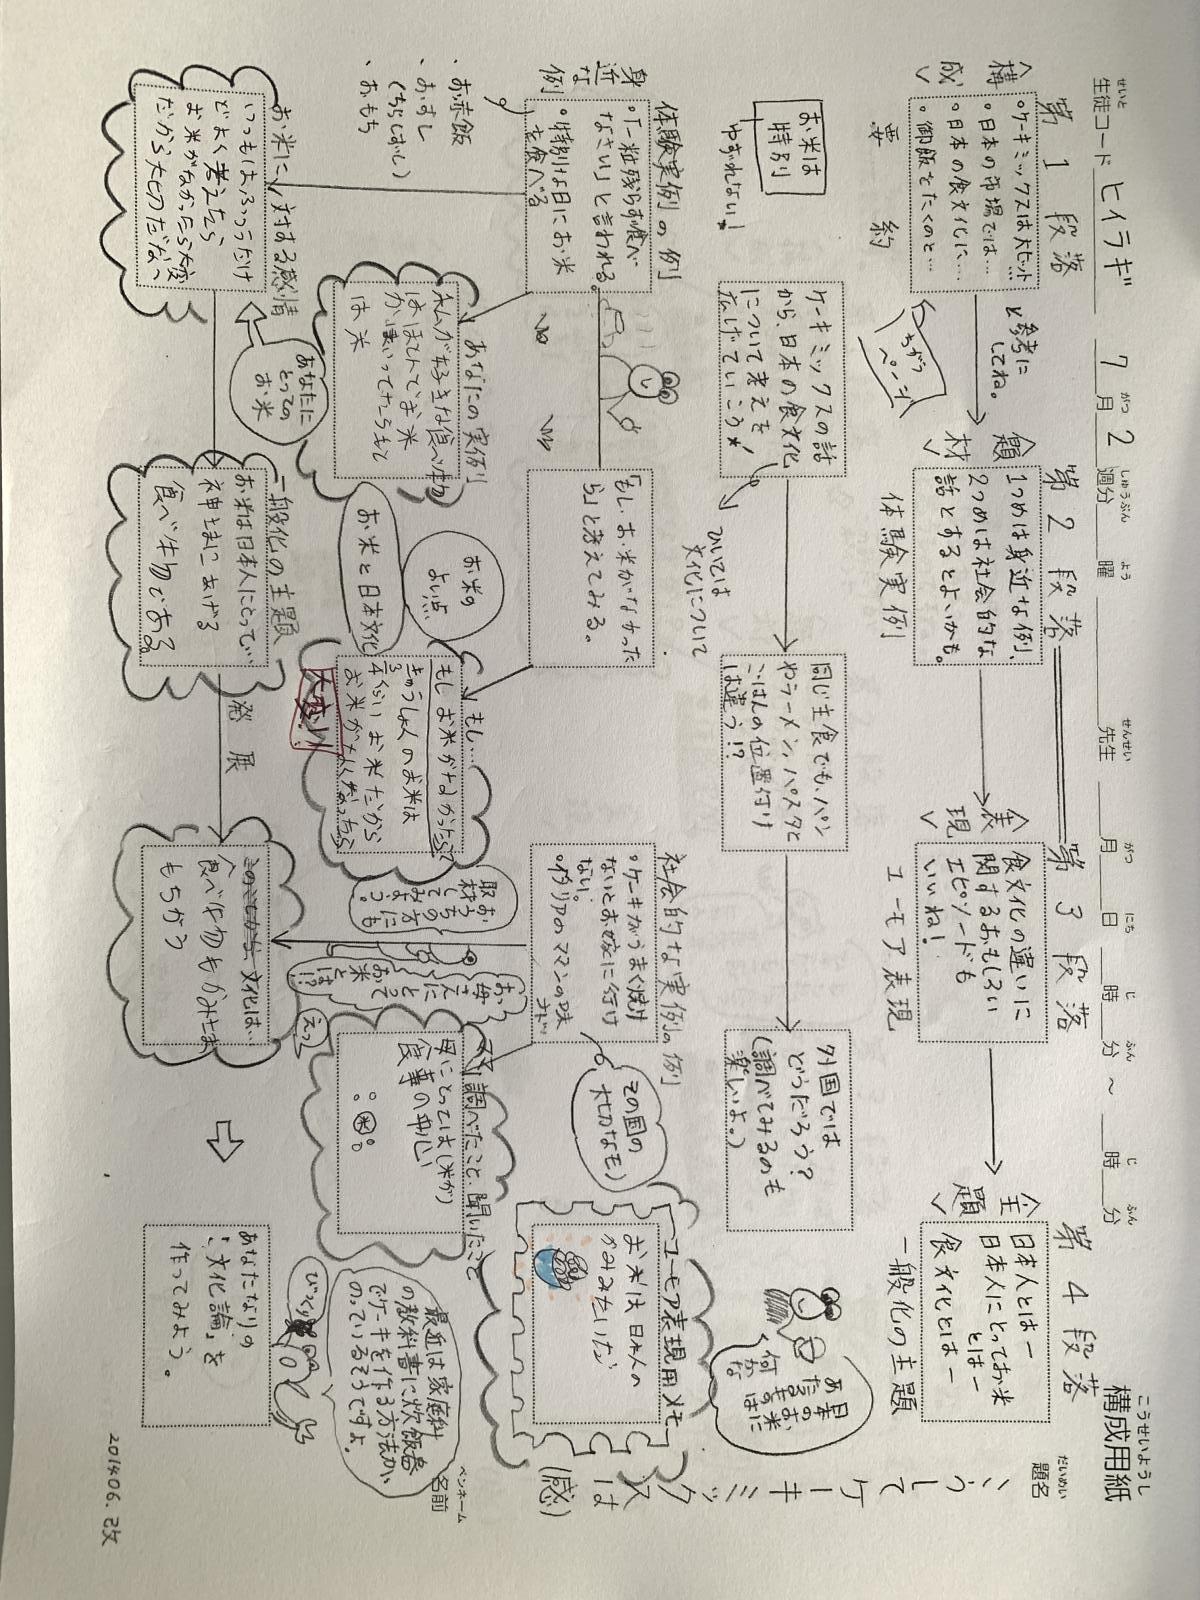 構成用紙
こうせいようし
生徒コード ヒイラギ 7月2週分 曜 先生 月 日 時 分 ~ 時 分
せいと がつ しゅうぶん よう せんせい がつ にち じ ふん じ ふん
題名
だいめい
こうしてケーキミックスは
(感)
ペンネーム
名前
第1段落
<構成>
・ケーキミックスは大ヒット…
・日本の市場では…
・日本の食文化に…
・御飯をたくのと…
要約
と参考に
してね。
ちがう
ページ
第2段落
<題材>
1つめは身近な例、
2つめは社会的な
話とするとよいかも。
体験実例
第3段落
<表現>
食文化の違いに
関するおもしろい
エピソードも
いいね!
ユーモア表現
第4段落
<主題>
日本人とはー
日本人にとってお米
とはー
食文化とはー
一般化の主題
お米は
特別
ゆずれない!
ケーキミックスの話
から、日本の食文化
について考えを
広げていこう
ひいては
文化について
同じ主食でも、パン
やラーメン、パスタと
ごはんの位置付け
は違う!?
外国では
どうだろう?
(調べてみるのも
楽しいよ。)
体験実例の例
身近な例
・「一粒残らず食べ
なさい」と言われる。
・特別な日にお米
を食べる
・お赤飯
・おすし
(ちらしずし)
・おもち
「もし、お米がなかった
ら」と考えてみる。
社会的な実例の例
・ケーキがうまく焼け
ないとお嫁に行け
ない。
その国の
大切なモノ
ユーモア表現用メモ
お米は日本人の
かみみたいだ
あなたの実例
私が好きな食べ物
はほとんどお米
は米
お米の
よい点
お米と日本文化
もし…
もしお米がなかったら
きゅうしょくのお米は
お米だから
大変!!
取材してみよう。
お母さんにとってお米とは!?
えっ
調べたこと、聞いたこと
母にとっては(米が)
食事の中心
米
最近は家庭科
の教科書に炊飯器
でケーキを作る方法が
のっているそうですよ。
びっくり
お米に対する感情
いつもはふつうだけ
どよく考えたら
お米がなかったら大変
だから大切だな〜
あなたに
とっての
お米
一般化の主題
お米は日本人にとって…
神さまにあげる
食べ物である。
発展
文化は…
食べ物もかみさま
もちがう
あなたなりの
「文化論」を
作ってみよう。
201406.改